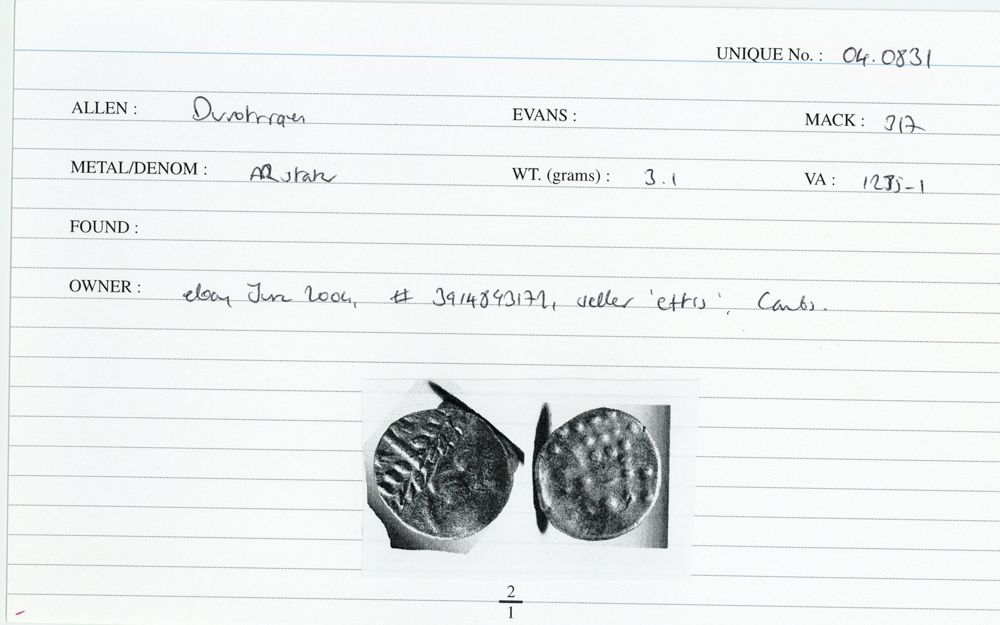 UNIQUE No. : 04.0831
ALLEN : Durotriges EVANS : MACK : 317
METAL/DENOM : AR stater WT. (grams) : 3.1 VA : 1235-1
FOUND :
OWNER : ebay June 2004, # 3914893172, seller 'ettis', Cambs.
2
1